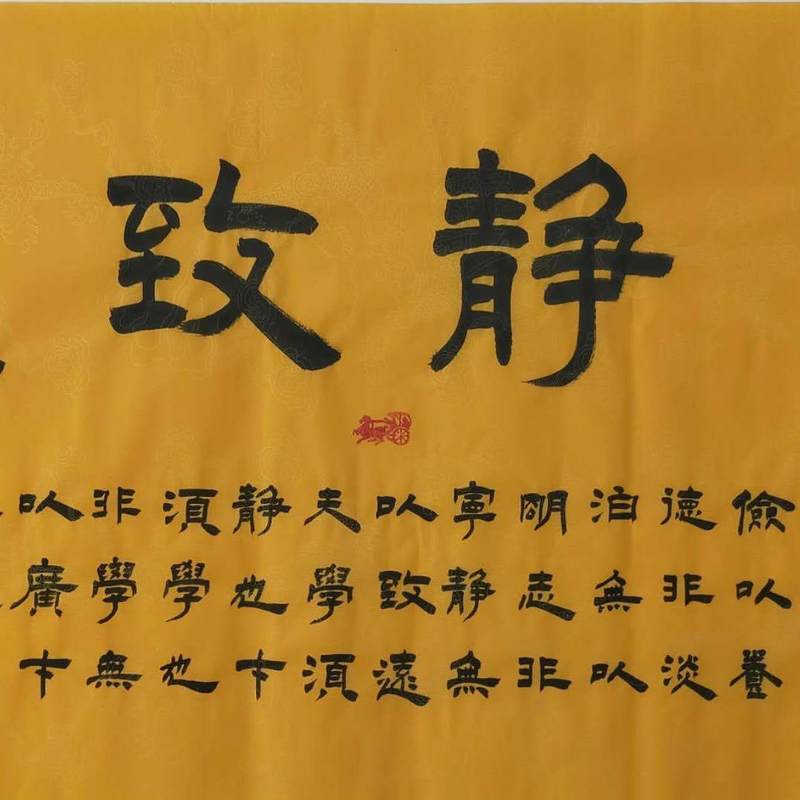 静致
儉以養
德非淡
泊無以
明志非
寧静無
以致遠
夫學須
静也才
須學也
非學無
以廣才